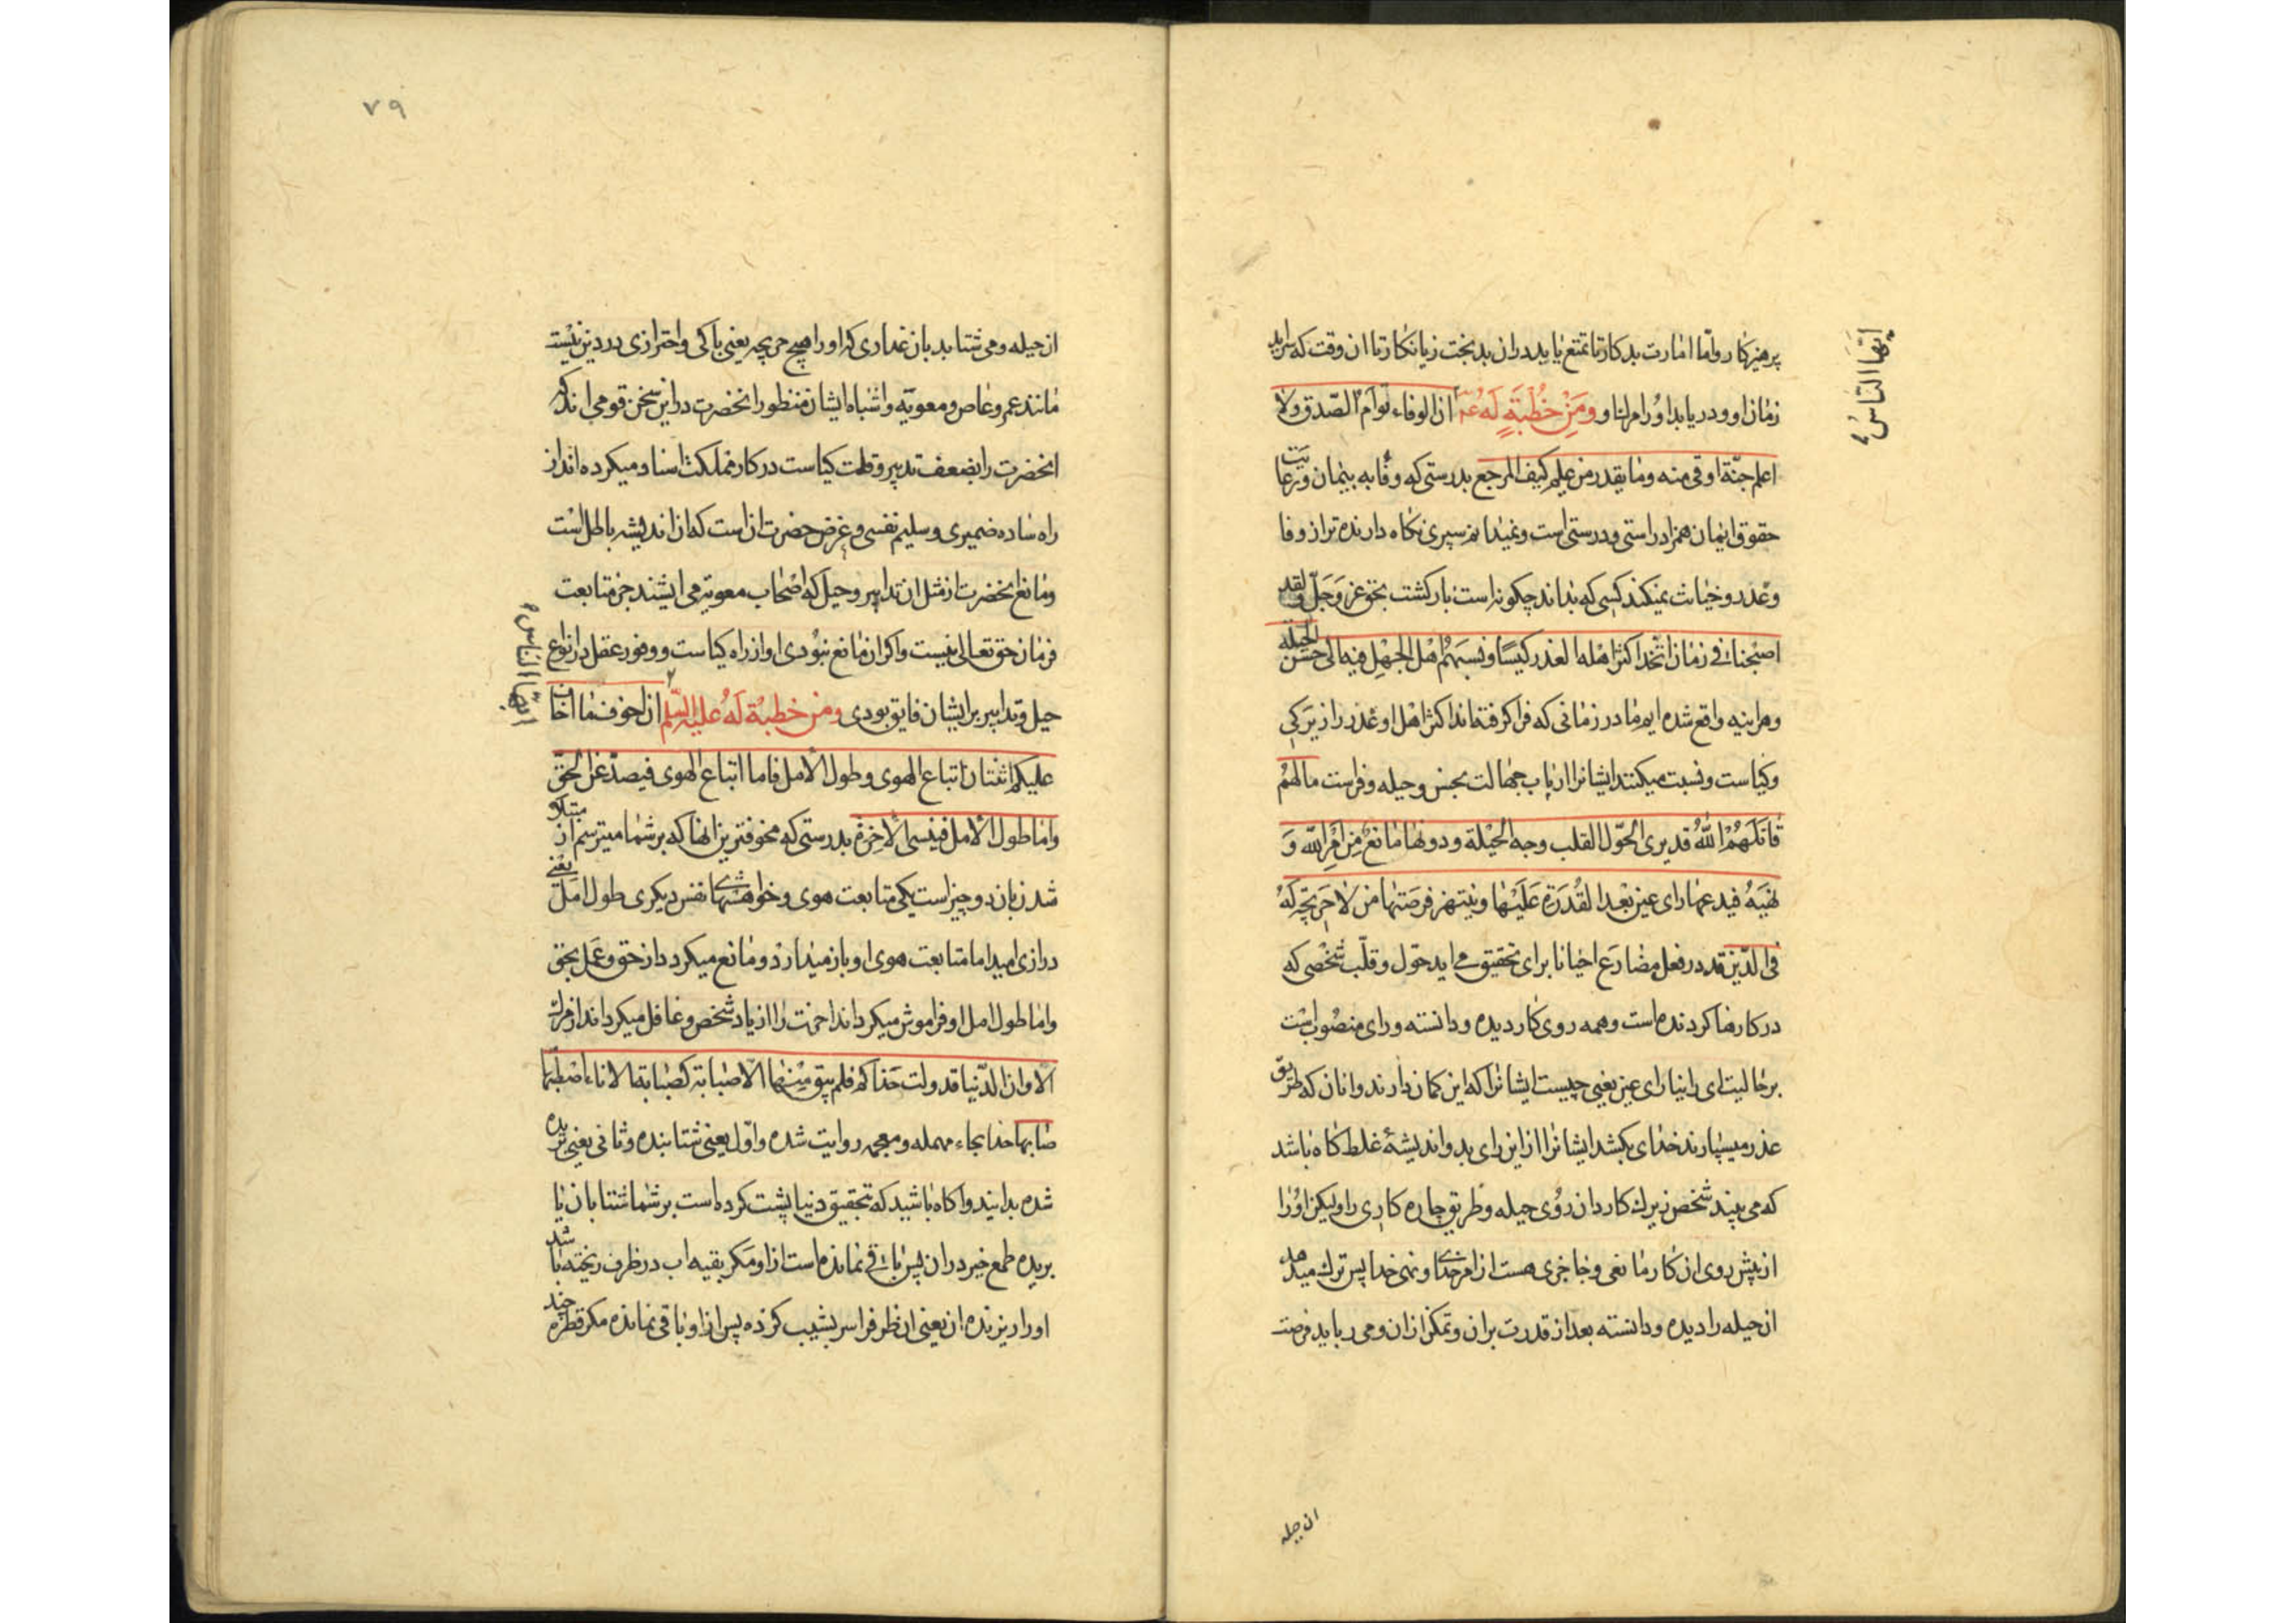 پرهیزکار و امّا امارت بدکار تا تمتع یابد دران بدبخت زیانکار تا ان وقت که سراید
زمان او و دریابد او را مرك او ومن خطبة له عم ان الوفاء توأم الصّدق ولا
اعلم جنّة اوقی منه وما یغدر من علم کیف المرجع بدرستی که وفا به پیمان و رعایت
حقوق ایمان همزاد راستی و درستی است و نمیدانم سپری نکاه دارنده تر از وفا
و غدر و خیانت نمیکند کسی که بداند چکونه است بازکشت بحق عز وجلّ ولقد
اصبحنا فی زمان اتّخذ اکثر اهله الغدر کیسًا ونسبهم اهل الجهل فیه الی حسن الحیلة
و هراینه واقع شده ایم ما در زمانی که فرا کرفته اند اکثر اهل او غدر را زیرکی
و کیاست و نسبت میکنند ایشانرا ارباب جهالت بحسن و حیله و فراست ما لهم
قاتلهم الله قد یری الحوّل القلب وجه الحیلة ودونها مانع من امر الله و
نهیه فیدعها رای عین بعد القدرة علیها وینتهز فرصتها من لا حریجة له
فی الدّین قد در فعل مضارع احیانا برای تحقیق می اید حوّل و قلّب شخصی که
در کارها کردنده است و همه روی کار دیده و دانسته و رای منصوب است
بر حالیت ای رایا رای عین یعنی چیست ایشانرا که این کمان دارند و انان که طریق
عذر میسپارند خدای بکشد ایشانرا از این رای بد و اندیشهٔ غلط کاه باشد
که می بیند شخص زیرك کاردان روی حیله و طریق چاره کاری را و لیکن او را
از پیش روی ان کار مانعی و حاجزی هست از امر خدای و نهی خدا پس ترك میدهد
ان حیله را دیده و دانسته بعد از قدرت بران و تمکن ازان و می رباید فرصت
ایّها النّاس
ان حیله
۷۹
ان حیله و می شتابد بان غداری که او را هیچ حریجه یعنی باکی و احترازی در دین نیست
مانند عمرو عاص و معویّه و اشباه ایشان منظور انحضرت در این سخن قومی اند که
انحضرت را بضعف تدبیر و قلت کیاست در کار مملکت اسناد میکرده اند از
راه ساده ضمیری و سلیم نفسی و غرض حضرت ان است که ان اندیشه باطل است
و مانع انحضرت از مثل ان تدابیر و حیل که اصحاب معویه می اندیشند جز متابعت
فرمان حق تعالی نیست و اکر ان مانع نبودی او از راه کیاست و وفور عقل در انواع
حیل و تدابیر بر ایشان فایق بودی ومن خطبة له علیه السّلم ان اخوف ما اخاف
علیکم اثنتان اتباع الهوی وطول الأمل فاما اتباع الهوی فیصدّ عن الحقّ
واما طول الأمل فینسی الآخرة بدرستی که مخوفترین انها که بر شما میترسم از مبتلا
شدن بان دو چیز است یکی متابعت هوی و خواهشهای نفس دیکری طول امل یعنی
درازی امید اما متابعت هوی او باز میدارد و مانع میکردد از حق و عمل بحق
و اما طول امل او فراموش میکرداند اخرت را از یاد شخص و غافل میکرداند از مرك
الا وان الدّنیا قد ولت حذاء فلم یبق منها الّا صبابة کصبابة الاناء اصطبّها
صابّها حذا بحاء مهمله و معجمه روایت شده و اوّل یعنی شتابنده و ثانی یعنی بریده
شده بدانید و اکاه باشید که بتحقیق دنیا پشت کرده است بر شما شتابان یا
بریده طمع خیر دران پس باقی نمانده است از او مکر بقیه اب در ظرف ریخته باشد
او را ریزنده ان یعنی ان ظرف را سر بشیب کرده پس از او باقی نمانده مکر قطره چند
ایها الناس